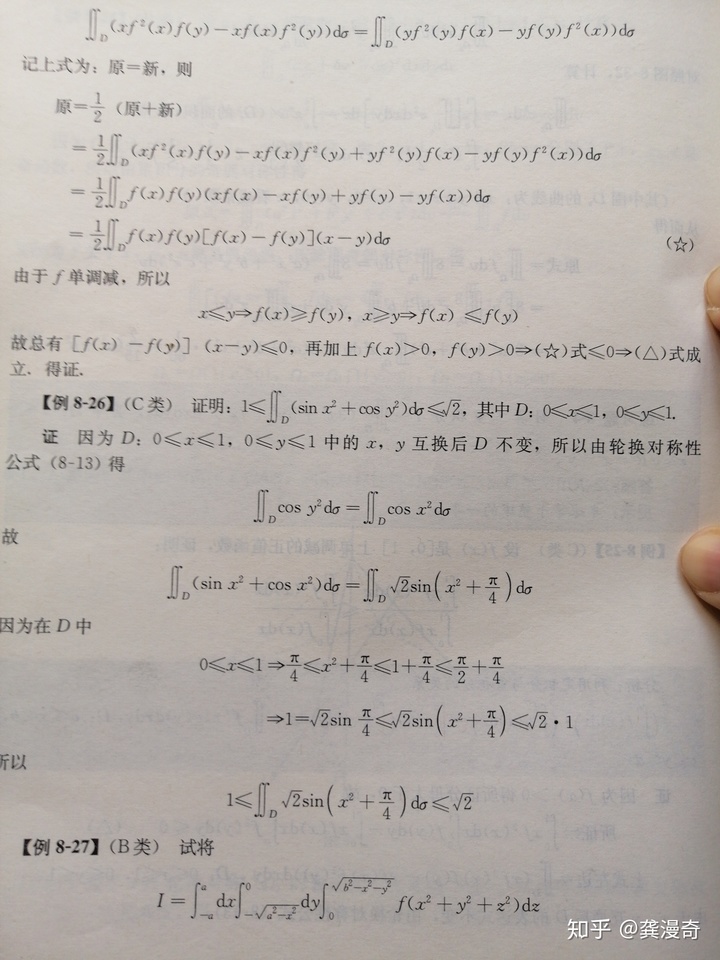 ∬_D (xf²(x)f(y)−xf(x)f²(y))dσ=∬_D (yf²(y)f(x)−yf(y)f²(x))dσ
记上式为：原=新，则
原=1/2 (原+新)
=1/2∬_D (xf²(x)f(y)−xf(x)f²(y)+yf²(y)f(x)−yf(y)f²(x))dσ
=1/2∬_D f(x)f(y)(xf(x)−xf(y)+yf(y)−yf(x))dσ
=1/2∬_D f(x)f(y)[f(x)−f(y)](x−y)dσ (☆)
由于 f 单调减，所以
x≤y⇒f(x)≥f(y)，x≥y⇒f(x) ≤f(y)
故总有 [f(x) −f(y)] (x−y)≤0，再加上 f(x)>0，f(y)>0⇒(☆)式≤0⇒(△)式成
立．得证．
【例 8-26】(C类) 证明：1≤∬_D (sin x²+cos y²)dσ≤√2，其中 D：0≤x≤1，0≤y≤1.
证 因为 D：0≤x≤1，0≤y≤1 中的 x，y 互换后 D 不变，所以由轮换对称性
公式 (8-13) 得
∬_D cos y²dσ=∬_D cos x²dσ
故
∬_D (sin x²+cos x²)dσ=∬_D √2sin(x²+π/4)dσ
因为在 D 中
0≤x≤1⇒π/4≤x²+π/4≤1+π/4≤π/2+π/4
⇒1=√2sin π/4≤√2sin(x²+π/4)≤√2·1
所以
1≤∬_D √2sin(x²+π/4)dσ≤√2
【例 8-27】(B类) 试将
I=∫_{-a}^{a} dx∫_{-√(a²−x²)}^{0} dy∫_{0}^{√(b²−x²−y²)} f(x²+y²+z²)dz
知乎 @龚漫奇